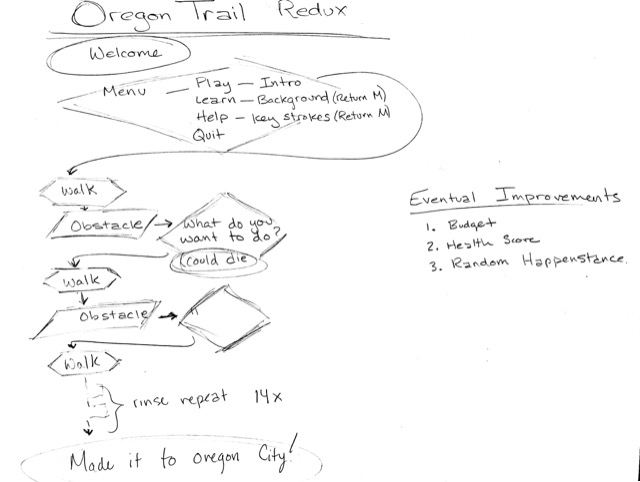 Oregon Trail Redux
Welcome
Menu — Play — Intro
Learn — Background (Return M)
Help — Key strokes (Return M)
Quit
Walk
Obstacle
What do you
want to do?
could die
Walk
Obstacle
"
Walk
rinse repeat 14x
Made it to Oregon City!
Eventual Improvements
1. Budget
2. Health Score
3. Random Happenstance.